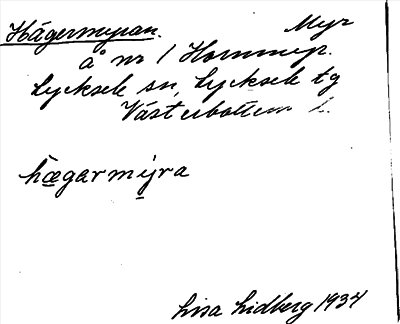 Hägermyran. Myr
å nr 1 Hornmyr.
Lycksele sn, Lycksele tg
Västerbottens l.
hægarmyra
Lisa Lidberg 1934